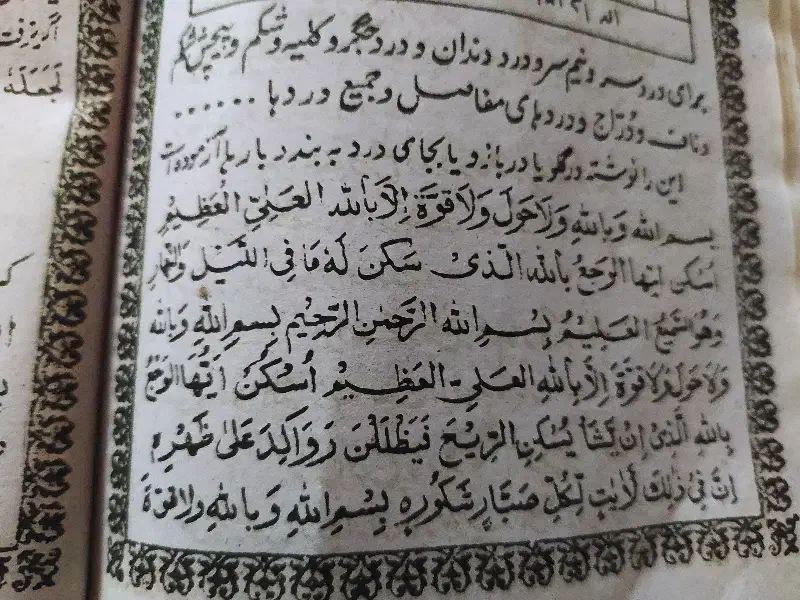 برای درد سر و نیم سر و درد دندان و درد جگر و کلیه و شکم و پیچش شکم
و ناف و درد های مفاصل و جمیع درد ها ......
این را نوشته در گلو یا در بازو یا بجای درد به بندد بار ها آزموده است
بِسمِ اللهِ وَبِاللهِ وَلَاحَولَ وَلَا قُوَّةَ اِلَّا بِاللهِ العَلِیِّ العَظِیْمِ
اُسْکُنْ اَیُّهَا الوَجَعُ بِاللهِ الَّذِیْ سَکَنَ لَهٗ مَا فِی اللَّیْلِ وَالنَّهَارِ
وَهُوَ السَّمِیْعُ العَلِیْمُ بِسْمِ اللهِ الرَّحْمٰنِ الرَّحِیْمِ بِسمِ اللهِ وَبِاللهِ
وَلَاحَولَ وَلَا قُوَّةَ اِلَّا بِاللهِ العَلِیِّ العَظِیْمِ اُسْکُنْ اَیُّهَا الوَجَعُ
بِاللهِ الَّذِیْ اِنْ یَّشَأْ یُسْکِنِ الرِّیْحَ فَیَظْلَلْنَ رَوَاکِدَ عَلٰی ظَهْرِهٖ
اِنَّ فِیْ ذٰلِکَ لَاٰیٰتٍ لِّکُلِّ صَبَّارٍ شَکُوْرٍ بِسْمِ اللهِ وَبِاللهِ وَلَا قُوَّةَ